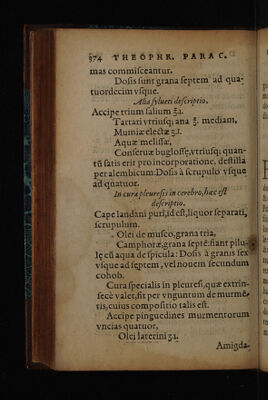 974 THEOPHR. PARAC.
mas commisceantur.
Dosis sunt grana septem ad qua-
tuordecim vsque.
Alia sylueti descriptio.
Accipe trium salium ℥a.
Tartari vtriusq; ana ℥. mediam,
Mumiæ electæ ʒ.I.
Aquæ melissæ,
Conseruæ buglossę, vtriusq; quan-
tū satis erit pro incorporatione, destilla
per alembicum: Dosis à scrupulo vsque
ad quatuor.
In cura pleuresis in cerebro, hæc est
descriptio.
Cape laudani puri, id est, liquor separati,
scrupulum.
Olei de musco, grana tria,
Camphoræ, grana septē: fiant pilu-
lę cū aqua de spicula: Dosis à granis sex
vsque ad septem, vel nouem secundum
cohob.
Cura specialis in pleuresi, quæ extrin-
secè valet, fit per vnguentum de murmē-
tis, cuius compositio talis est.
Accipe pinguedines murmentorum
vncias quatuor,
Olei laterini ʒa.
Amigda-